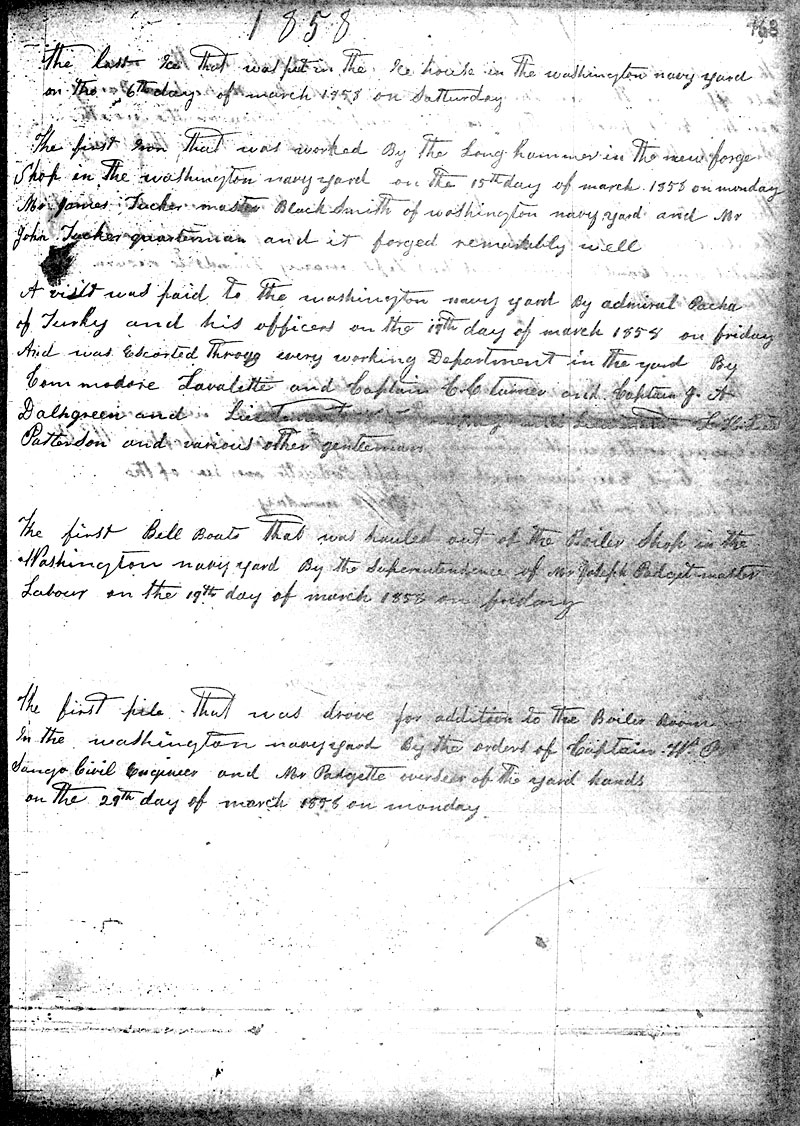 1858
168
The last Ice That was put in The Ice house in The washington navy yard
on the 6th day of march 1858 on Satturday
The first Iron that was worked By the Long hammer in the new forge
Shop in the washington navy yard on the 15th day of march 1858 on monday
Mr James Tucker master Black Smith of washington navy yard and Mr
John Tucker quarterman and it forged remarkably well
A visit was paid to the washington navy yard By admiral Pacha
of Turky and his officers on the 19th day of march 1858 on friday
And was Escorted throug every working Department in the yard By
Commodore Lavalette and Captain C. C turner and Captain J. A
Dalhgreen and Lieutenant and
Patterson and various other gentleman
The first Bell Boats That was hauled out of the Boiler Shop in the
Washington navy yard By the Superentendence of Mr Joseph Padget master
Labour on the 19th day of march 1858 on friday
The first pile that was drove for addition to the Boiler Room
In the washington navy yard By the orders of Captain Wm P
Sango Civil Engineer and Mr Padgette overseer of the yard hands
on the 29th day of march 1858 on monday